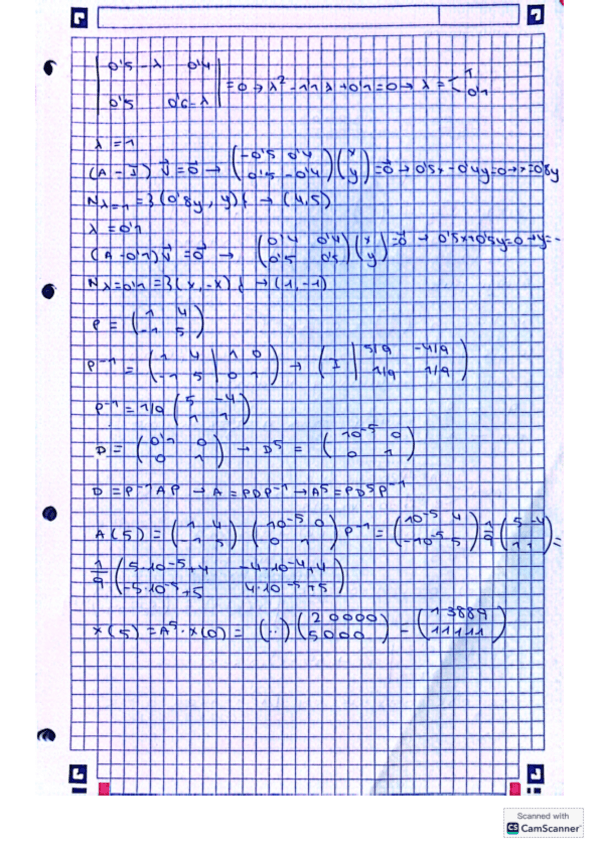 | 0'5-λ 0'4 |
| 0'5 0'6-λ | = 0 → λ² - 1'1λ + 0'1 = 0 → λ = < 1 0'1
λ = 1
(A - I) v⃗ = 0⃗ → (-0'5 0'4 / 0'5 -0'4) (x / y) = 0⃗ → 0'5x - 0'4y = 0 → x = 0'8y
Nλ=1 = {(0'8y, y)} → (4,5)
λ = 0'1
(A - 0'1) v⃗ = 0⃗ → (0'4 0'4 / 0'5 0'5) (x / y) = 0⃗ → 0'5x + 0'5y = 0 → y = -
Nλ=0'1 = {(x, -x)} → (1, -1)
P = (1 4 / -1 5)
P⁻¹ = (1 4 | 1 0 / -1 5 | 0 1) → (I | 5/9 -4/9 / 1/9 1/9)
P⁻¹ = 1/9 (5 -4 / 1 1)
D = (0'1 0 / 0 1) → D⁵ = (10⁻⁵ 0 / 0 1)
D = P⁻¹AP → A = PDP⁻¹ → A⁵ = PD⁵P⁻¹
A(5) = (1 4 / -1 5) (10⁻⁵ 0 / 0 1) P⁻¹ = (10⁻⁵ 4 / -10⁻⁵ 5) 1/9 (5 -4 / 1 1) =
1/9 (5·10⁻⁵+4 -4·10⁻⁴+4 / -5·10⁻⁵+5 4·10⁻⁵+5)
x(5) = A⁵·x(0) = (··) (20000 / 5000) = (13889 / 11111)
Scanned with
CS CamScanner